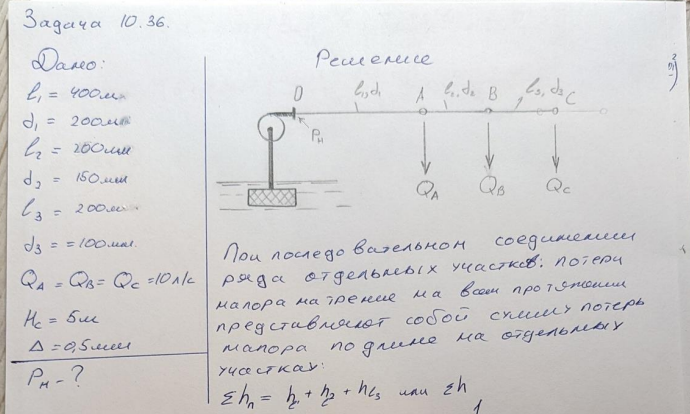 Задача 10.36.
Дано:
l₁ = 400м
d₁ = 200мм
l₂ = 200мм
d₂ = 150мм
l₃ = 200м
d₃ = =100мм.
QA = QB = QC = 10 л/с
Hc = 5м
Δ = 0,5мм
Pн - ?
Решение
O l₁,d₁ A l₂,d₂ B l₃,d₃ C
Pн
QA QB QC
При последовательном соединении
ряда отдельных участков. потери
напора на трение на всем протяжении
представляют собой сумму потерь
напора по длине на отдельных
участках:
Σhп = hl₁ + hl₂ + hl₃ или Σh
1